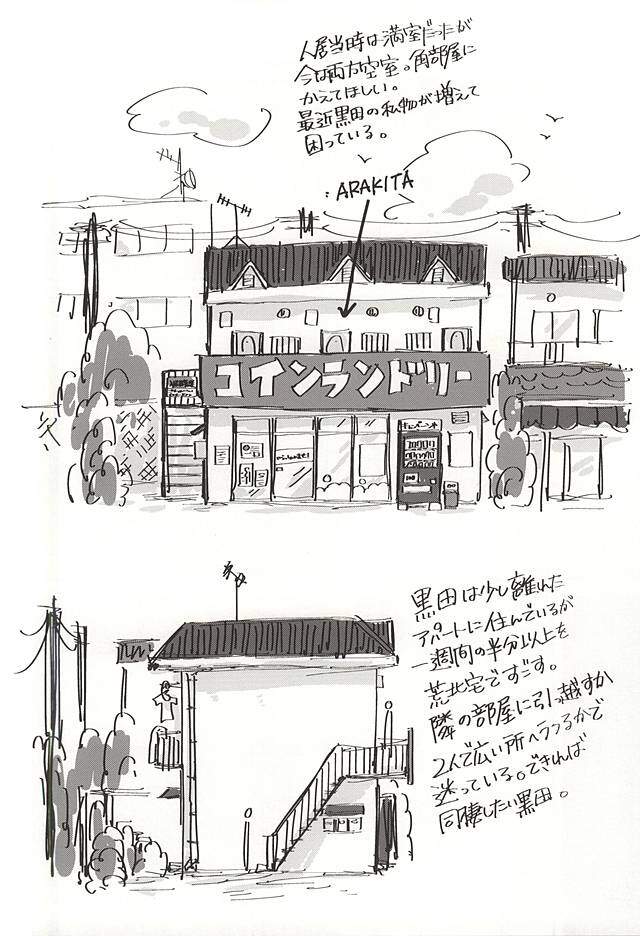 入居当時は満室だったが
今は両方空室。角部屋に
かえてほしい。
最近黒田の私物が増えて
困っている。
: ARAKITA
コインランドリー
黒田は少し離れた
アパートに住んでいるが
一週間の半分以上を
荒北宅ですごす。
隣の部屋に引っ越すか
2人で広い所へうつるかで
迷っている。できれば
同棲したい黒田。